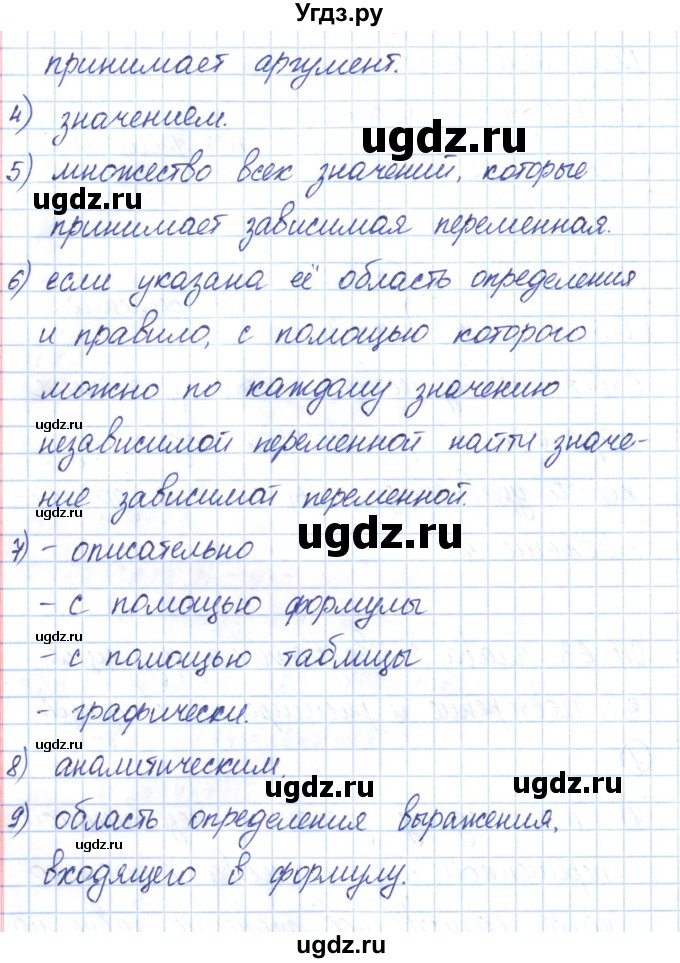 Угдз.ру
принимает аргумент.
4) значением.
ugdz.ru
5) множество всех значений, которые
ugdz.ru
принимает зависимая переменная.
6) если указана её область определения
и правило, с помощью которого
можно по каждому значению
ugdz.ru
независимой переменной найти значе-
ние зависимой переменной.
ugdz.ru
ugdz.ru
7) - описательно
- с помощью формулы
ugdz.ru
- с помощью таблицы
- графически.
ugdz.ru
8) аналитическим.
ugdz.ru
ugdz.ru
9) область определения выражения,
ugdz.ru
входящего в формулу.
ugdz.ru